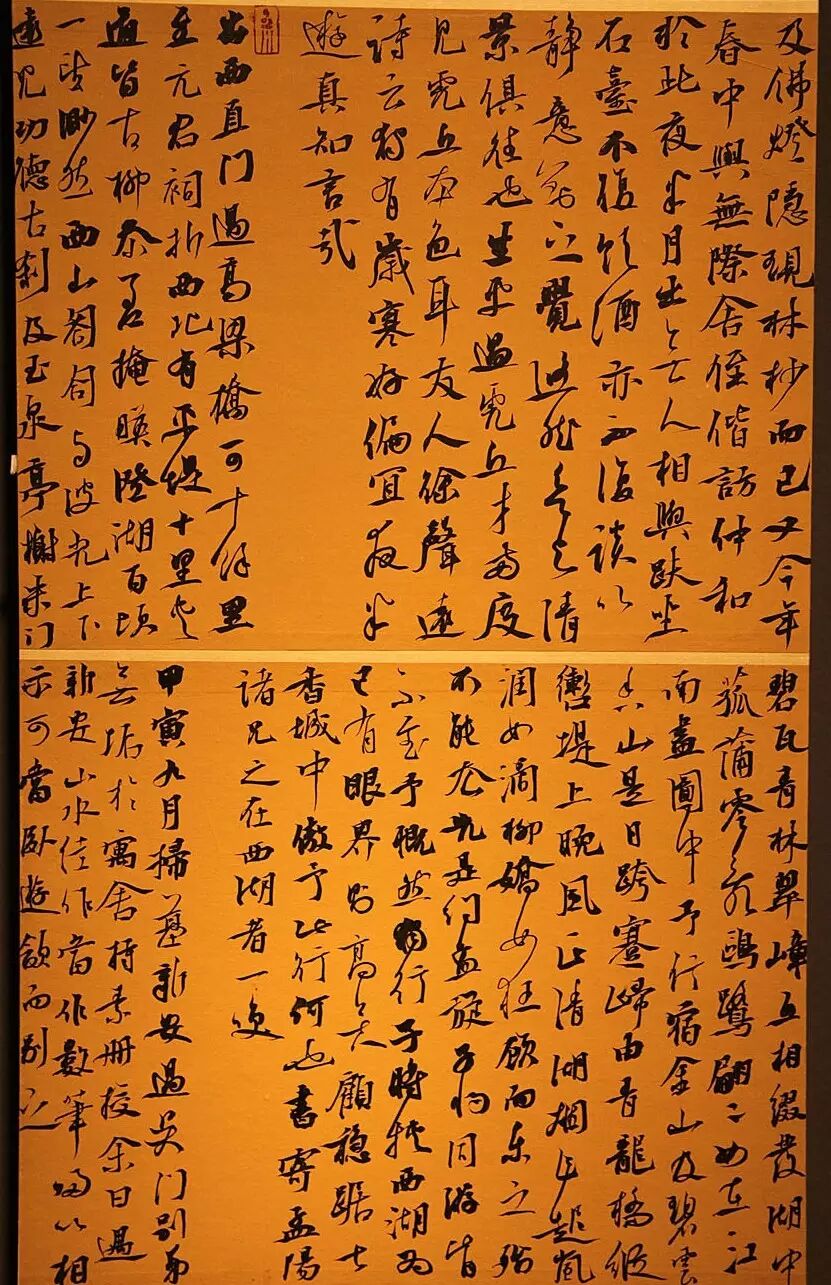 及佛燈隱現林杪而已又今年
春中與無際舍侄偕訪仲和
於此夜半月出無人相與趺坐
石臺不復飲酒亦不復談以
靜意對之覺悠然欲與清
景俱往也生平過虎丘才兩度
見虎丘本色耳友人徐聲遠
詩云獨有歲寒好偏宜夜半
遊真知言哉
出西直门過高梁橋可十餘里
至元君祠折西北有平堤十里夾
道皆古柳參差掩映澄湖百頃
一望渺然西山匌匒与波光上下
遠見功德古刹及玉泉亭榭朱门
碧瓦青林翠嶂互相綴發湖中
菰蒲零亂鷗鷺翩二如在江
南畫圖中予行宿金山及碧雲
香山是日跨蹇歸由青龍橋縱
轡堤上晚风正清湖烟乍起嵐
潤如滴柳嬌如狂顧而樂之殆
不能去先是約孟旋子將同游皆
不至予慨然獨行子時挾西湖為
已有眼界則高矣顧穩踞七
香城中傲予此行何也書寄孟陽
諸兄之在西湖者一笑
甲寅九月掃墓新安過吳门別弟
無垢於寓舍持素冊授余曰過
新安山水佳作當作數筆歸以相
示可當臥遊頷而別之